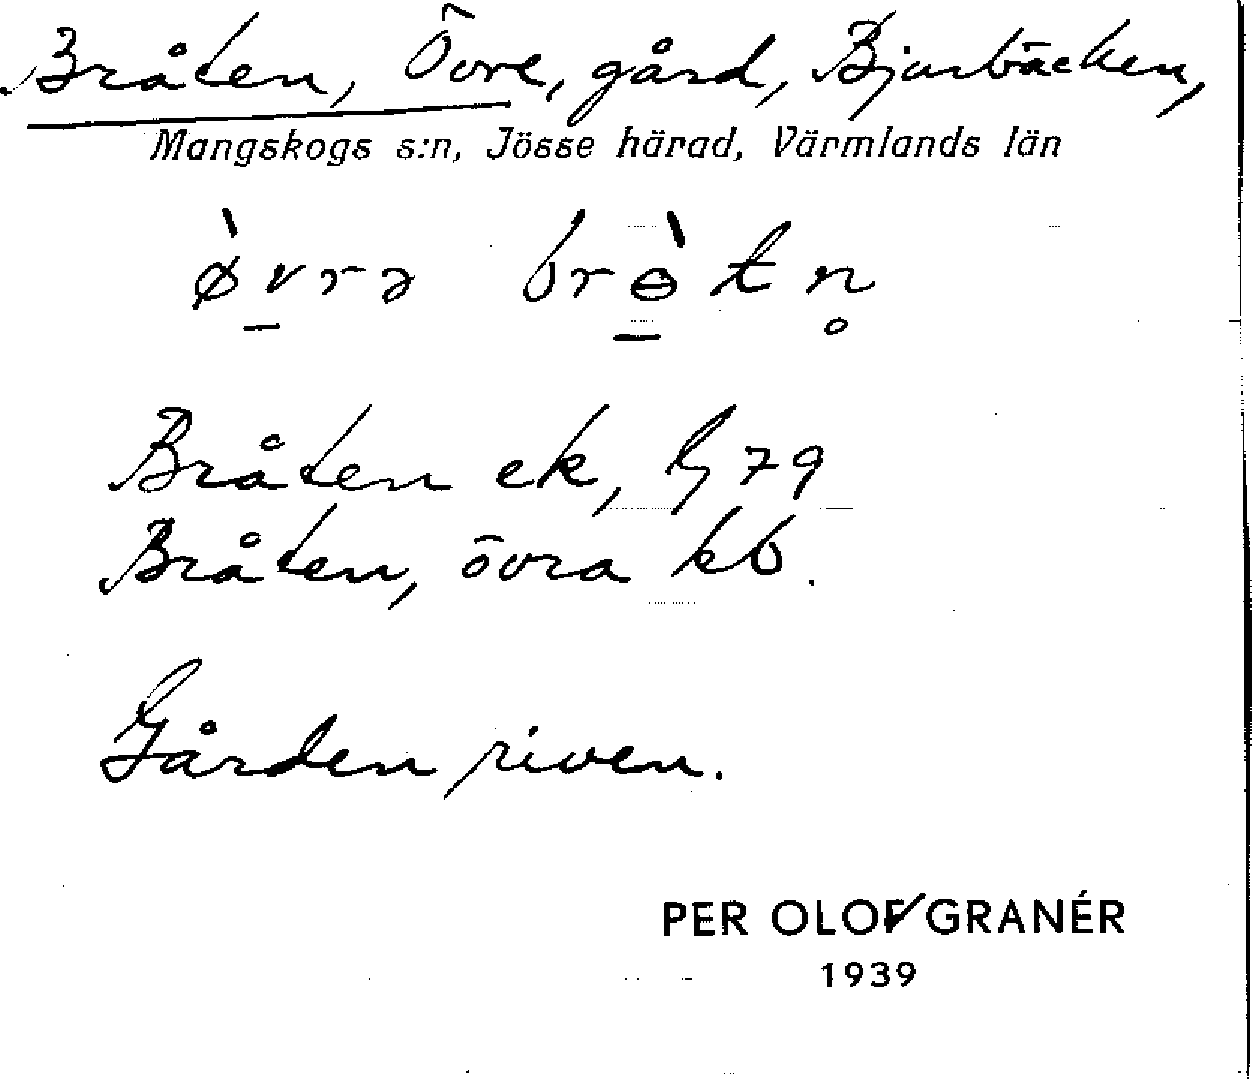 Bråten, Övre, gård, Bjurbäcken,
Mangskogs s:n, Jösse härad, Värmlands län
ø̀v̠rə brɵ̠̀tn̥
Bråten ek, G 79
Bråten, övra kb.
Gården riven.
PER OLOF GRANÉR
1939